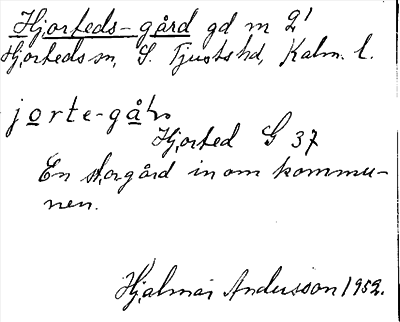 Hjorteds-gård gd m 2!
Hjorteds sn, S. Tjusts hd, Kalm. l.
jorte-gå
Hjorted G 37
En storgård inom kommu-
nen.
Hjalmar Andersson 1952.